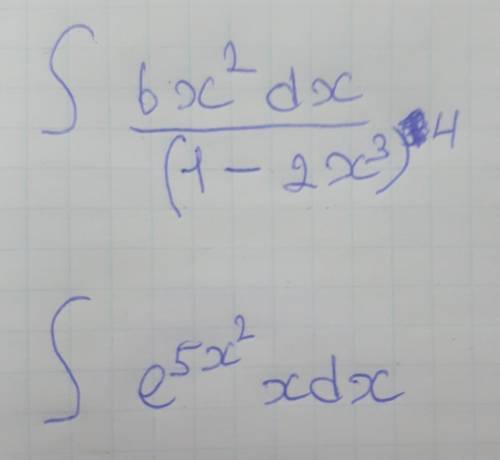 ∫ 6x² dx / (1 - 2x³)⁴
∫ e^{5x²} x dx